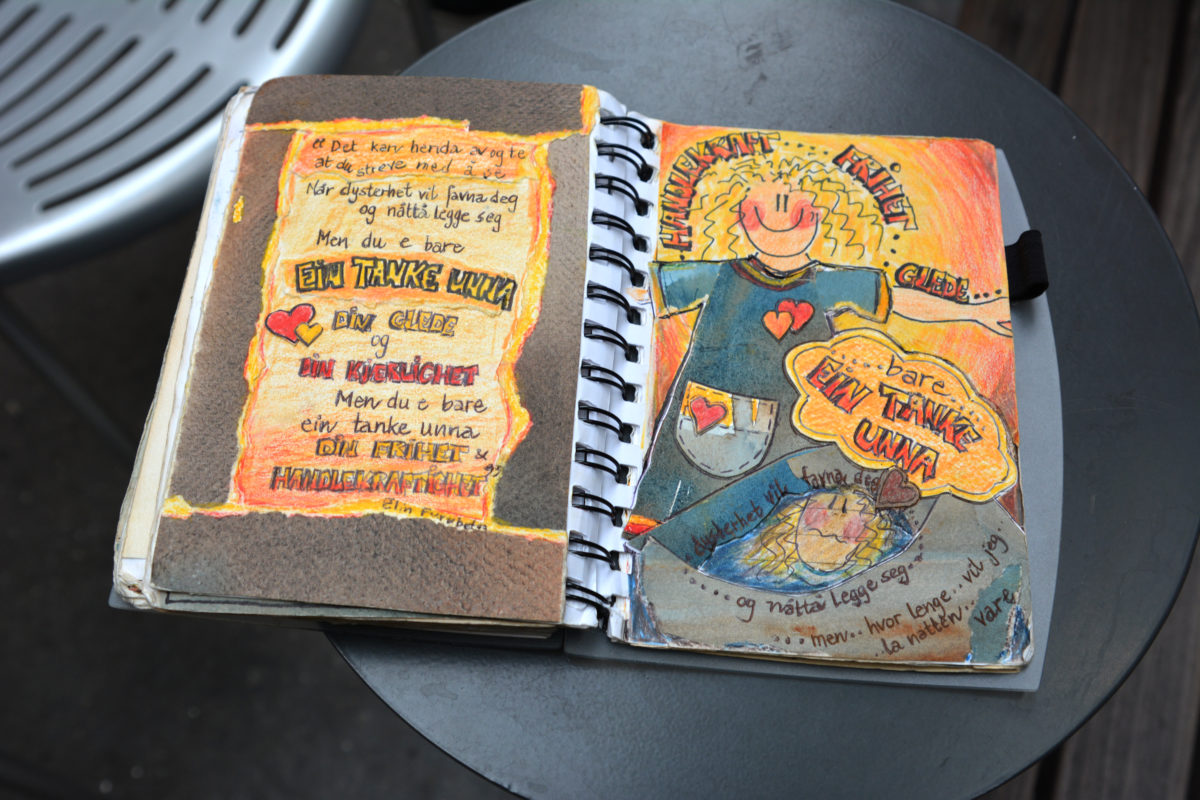 Det kan henda av og te
at du streve med å se
Når dysterhet vil favna deg
og nåttå legge seg
Men du e bare
EIN TANKE UNNA
DIN GLEDE
og
DIN KJERLIGHET
Men du e bare
ein tanke unna
DIN FRIHET &
HANDLEKRAFTIGHET
Elin
HANDLEKRAFT
FRIHET
GLEDE
bare...
EIN TANKE
UNNA
dysterhet vil favna deg
og nåttå legge seg
...men.. hvor lenge.. vil jeg
..la natten.. vare